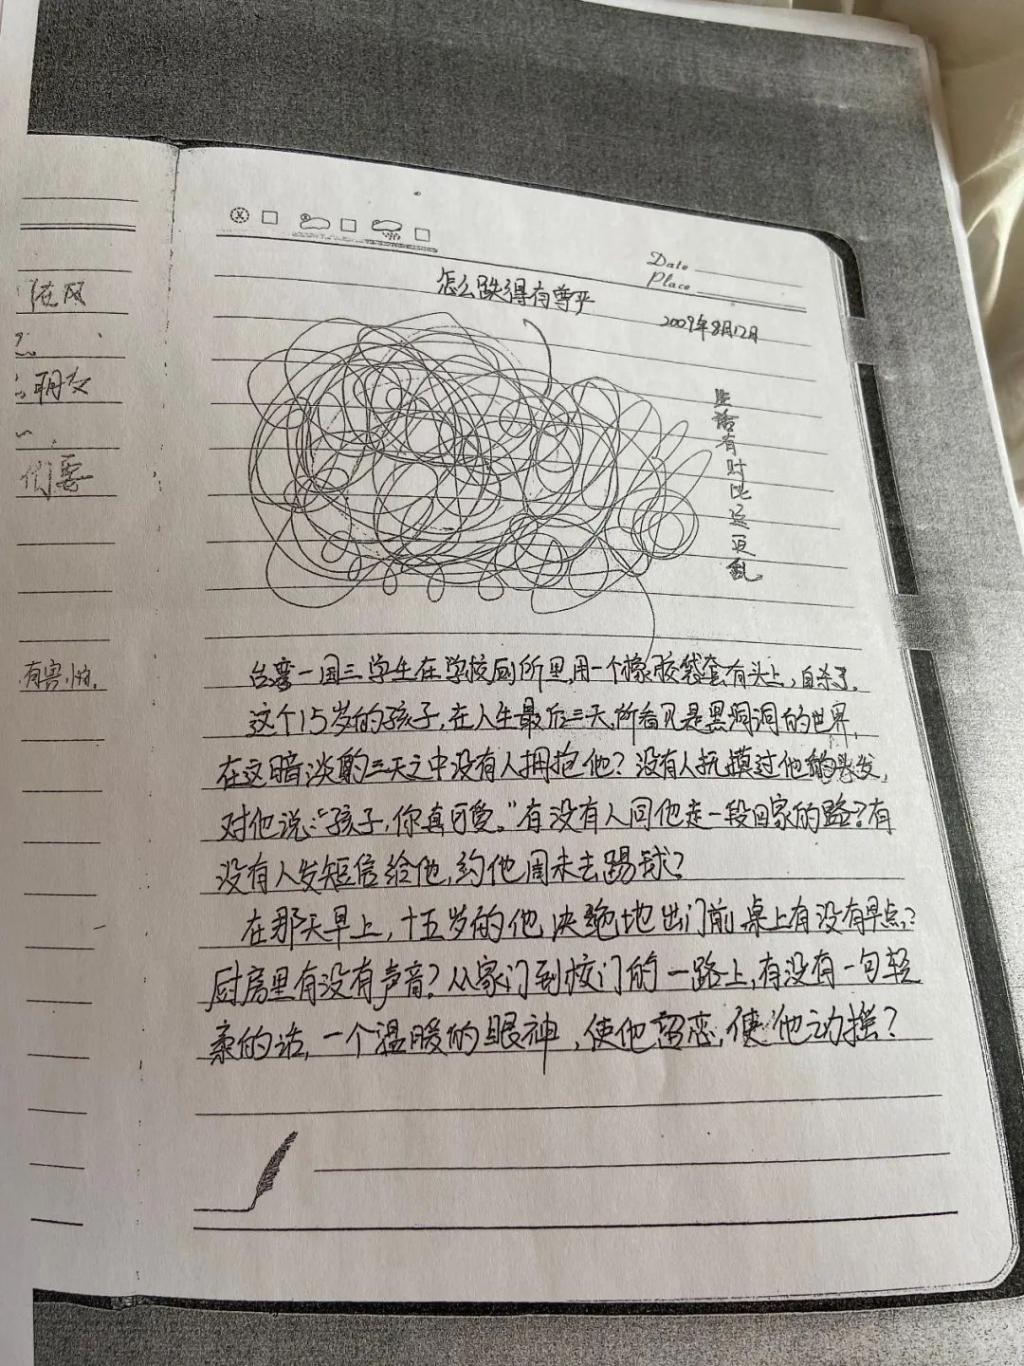 Date
Place
怎么跌得有尊严
2009年8月12日
生活有时比这更乱
台湾一国三学生在学校厕所里,用一个橡胶袋套有头上,自杀了.
这个15岁的孩子,在人生最后三天,所看见是黑洞洞的世界,
在这暗淡的三天之中没有人拥抱他?没有人抚摸过他的头发,
对他说:“孩子,你真可爱.”有没有人同他走一段回家的路?有
没有人发短信给他,约他周末去踢球?
在那天早上,十五岁的他决绝地出门前桌上有没有早点?
厨房里有没有声音?从家门到校门的一路上,有没有一句轻
柔的话,一个温暖的眼神,使他留恋,使他动摇?
朋友
们要
有害怕,